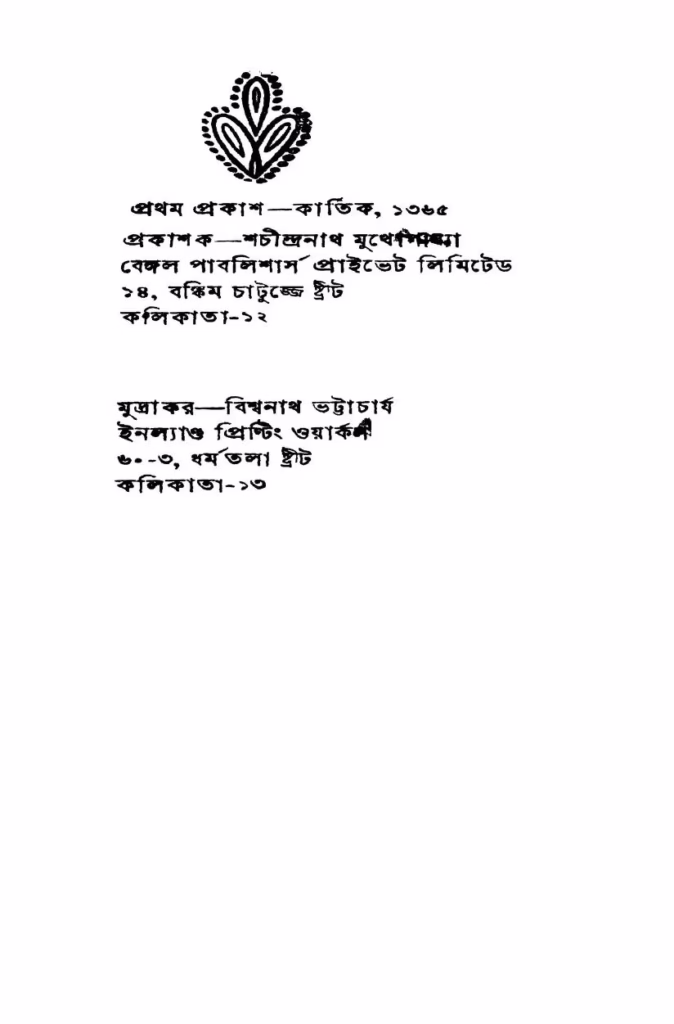 প্রথম প্রকাশ—কার্তিক, ১৩৬৫
প্রকাশক—শচীন্দ্রনাথ
বেঙ্গল পাবলিশার্স প্রাইভেট লিমিটেড
১৪, বঙ্কিম চাটুজ্জে ষ্ট্রীট
কলিকাতা-১২
মুদ্রাকর—বিশ্বনাথ ভট্টাচার্য
ইনল্যাণ্ড প্রিন্টিং ওয়ার্কস
৬০-৩, ধর্মতলা ষ্ট্রীট
কলিকাতা-১৩